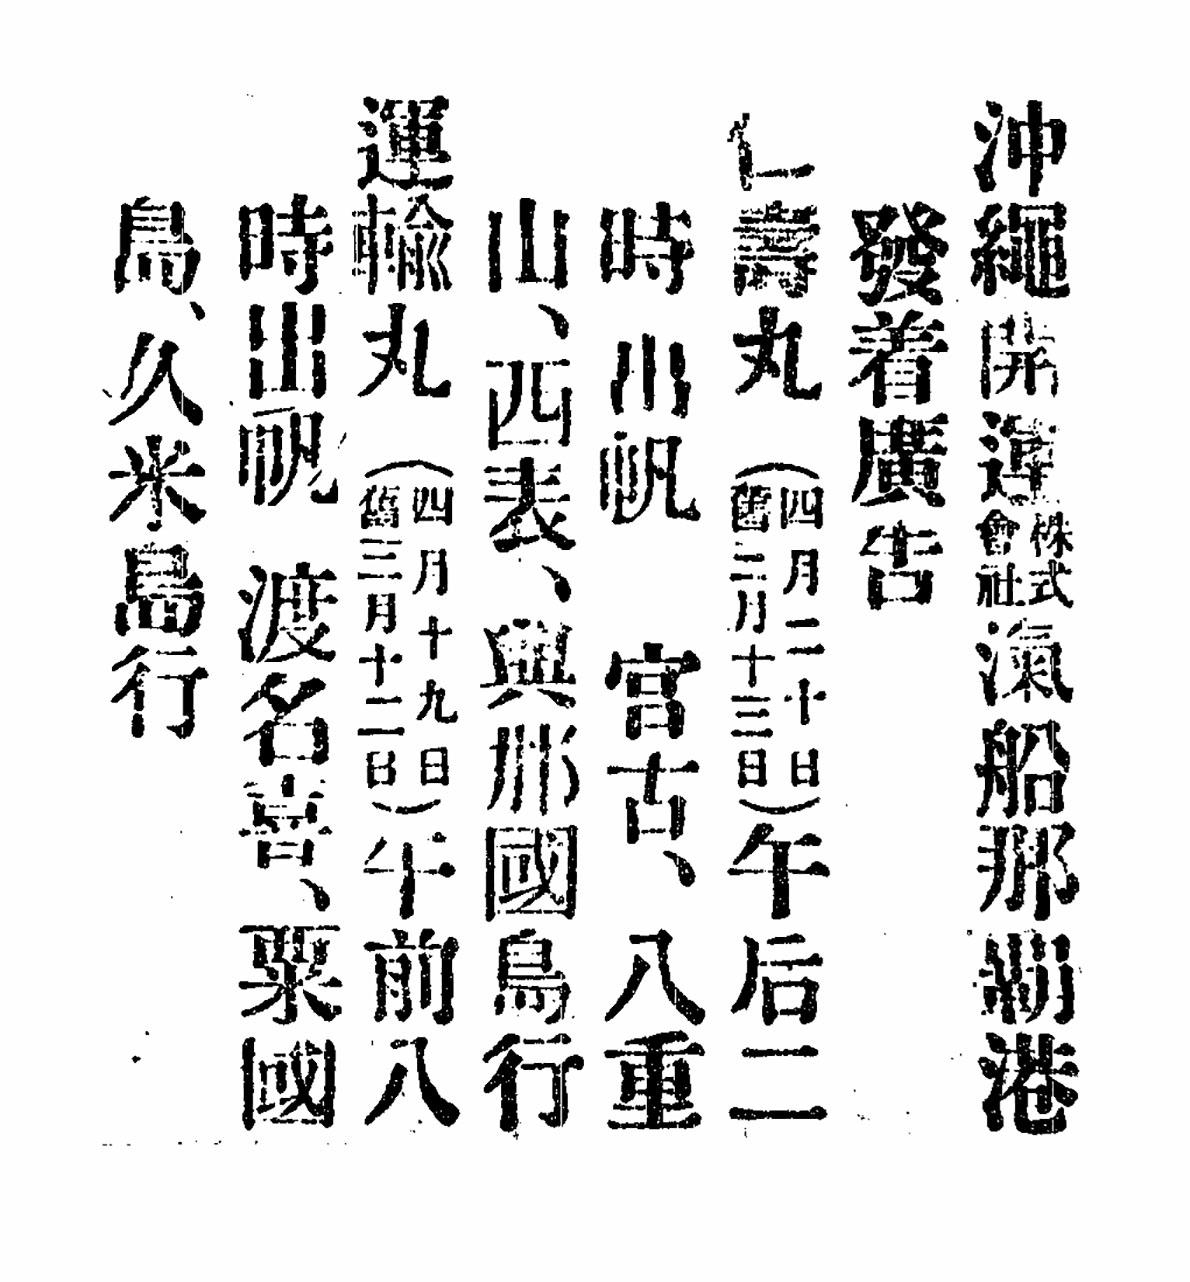 沖繩開運株式會社滊船那覇港
發着廣告
仁壽丸（四月二十日舊三月十三日）午后二
時出帆 宮古、八重
山、西表、與那國島行
運輸丸（四月十九日舊三月十二日）午前八
時出帆 渡名喜、粟國
島、久米島行